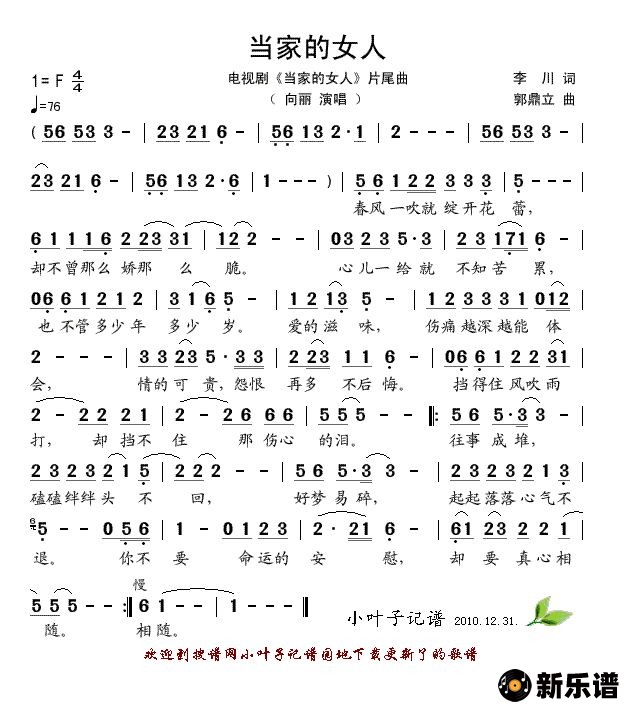 当家的女人
1=F 4/4
电视剧《当家的女人》片尾曲
李川 词
♩=76
（向丽 演唱）
郭鼎立 曲
( 56 53 3 - | 23 21 6 - | 56 13 2·1 | 2 - - - | 56 53 3 - |
23 21 6 - | 56 13 2·6 | 1 - - - ) | 5 6 1 22 3 3 3 | 5 - - - |
春风一吹就 绽开花 蕾，
6 1 1 1 6 2 23 31 | 12 2 - - | 03 23 5·3 | 23 171 6 - |
却不曾那么 娇那 么 脆。 心儿一给就 不知苦 累，
06 6 1 2 1 2 | 3 1 6 5 - | 1 2 13 5 - | 1 3 3 3 1 3 012 |
也 不管多少年 多少 岁。 爱的滋 味， 伤痛越深越能 体
2 - - - | 3 3 23 5·33 | 2 23 11 6 | 06 6 1 22 31 |
会， 情的可 贵，怨恨 再多 不后 悔。 挡得住风吹雨
2 - 22 21 | 2 - 22 6 | 5 55 5 - ‖: 56 5·3 3 - |
打， 却挡不 住 那伤心 的泪。 往事 成堆，
23 23 3 21 5 | 1 - - - | 56 5·3 3 - | 23 23 21 3 |
磕磕绊绊头 不 回， 好梦易碎， 起起落落心气不
5 - - 056 | 1 - 01 23 | 2· 21 6 - | 61 23 2 2 |
退。 你不 要 命运的 安 慰， 却 要 真心相
慢
55 5 - - :‖ 6 1 1 - | 1 - - - ‖
随。 相随。
小叶子记谱 2010.12.31.
欢迎到搜谱网小叶子记谱园地下载更新了的歌谱
新乐谱